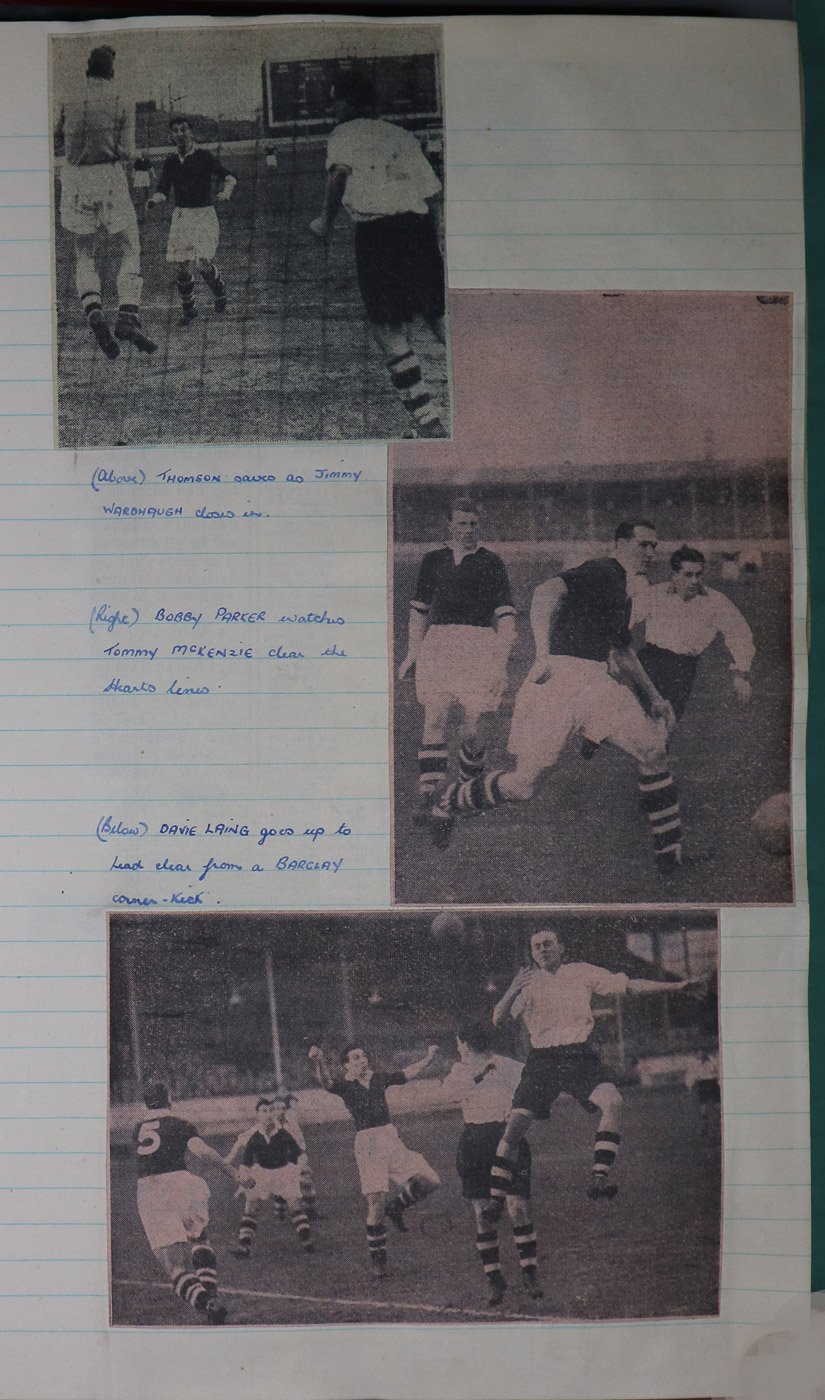 (Above) THOMSON saves as JIMMY
WARDHAUGH closes in.
(Right) BOBBY PARKER watches
TOMMY McKENZIE clear the
Hearts lines.
(Below) DAVIE LAING goes up to
head clear from a BARCLAY
corner-kick.
5